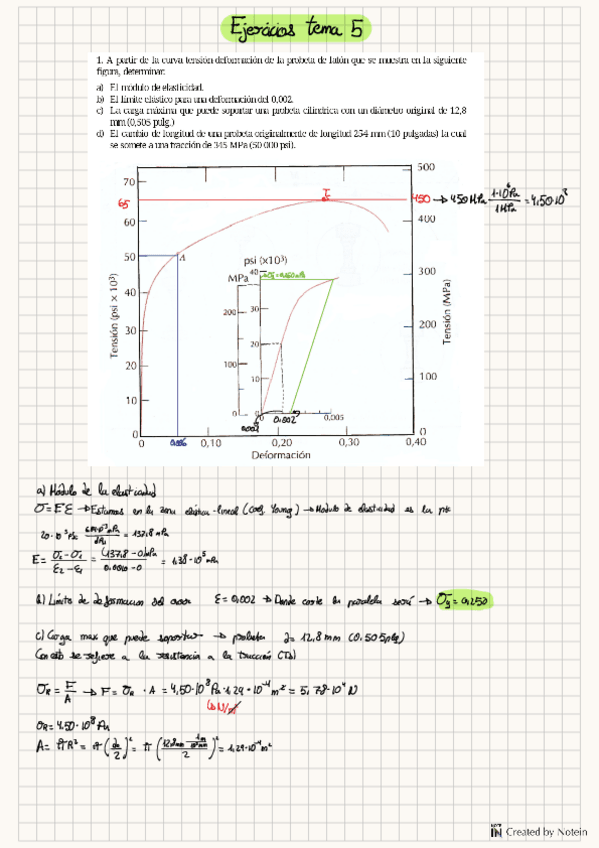 Ejercicios tema 5
1. A partir de la curva tensión deformación de la probeta de latón que se muestra en la siguiente
figura, determinar:
a) El módulo de elasticidad.
b) El límite elástico para una deformación del 0,002.
c) La carga máxima que puede soportar una probeta cilíndrica con un diámetro original de 12,8
mm (0,505 pulg.)
d) El cambio de longitud de una probeta originalmente de longitud 254 mm (10 pulgadas) la cual
se somete a una tracción de 345 MPa (50 000 psi).
70
65
60
50
40
30
20
10
0
Tensión (psi × 10³)
500
450 → 450 MPa 1·10⁶Pa / 1MPa = 4,50·10⁸
400
300
200
100
0
Tensión (MPa)
A
psi (×10³)
MPa
40
30
20
10
0
200
100
0
0
0,002
0,002
0,005
0
0,056
0,10
0,20
0,30
0,40
Deformación
a) Módulo de la elasticidad
σ = Eε → Estamos en la zona elástica-lineal (Young) → Modulo de elasticidad es la
= 137,8 MPa
E = σ₂ - σ₁ / ε₂ - ε₁ = (137,8 - 0) MPa / 0.0010 - 0 = 1.38·10⁵ MPa
b) Límite de deformacion del ε = 0,002 → Donde corte la paralela será → σy = 0,250
c) Carga max que puede soportar → probeta d = 12,8 mm (0.505 pulg)
Con esto se refiere a la resistencia a la tracción (TS)
σR = F/A → F = σR · A = 4,50·10⁸ Pa · 1.29·10⁻⁴ m² = 5,78·10⁴ N
N/m²
σR = 4.50·10⁸ Pa
A = πR² = π (d₀/2)² = π (12,8mm 1m/10³mm / 2)² = 1,29·10⁻⁴ m²
NOTE IN Created by Notein